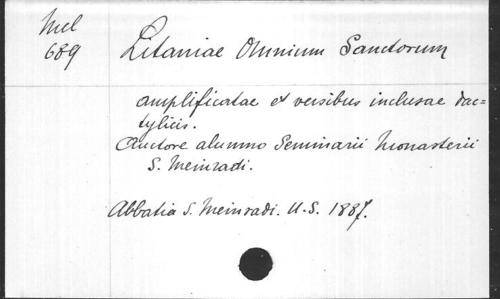 Mel
689
Litaniae Omnium Sanctorum
amplificatae et versibus inclusae dac=
tylicis.
Auctore alumno Seminarii Monasterii
S. Meinradi.
Abbatia S. Meinradi. U.S. 1887.